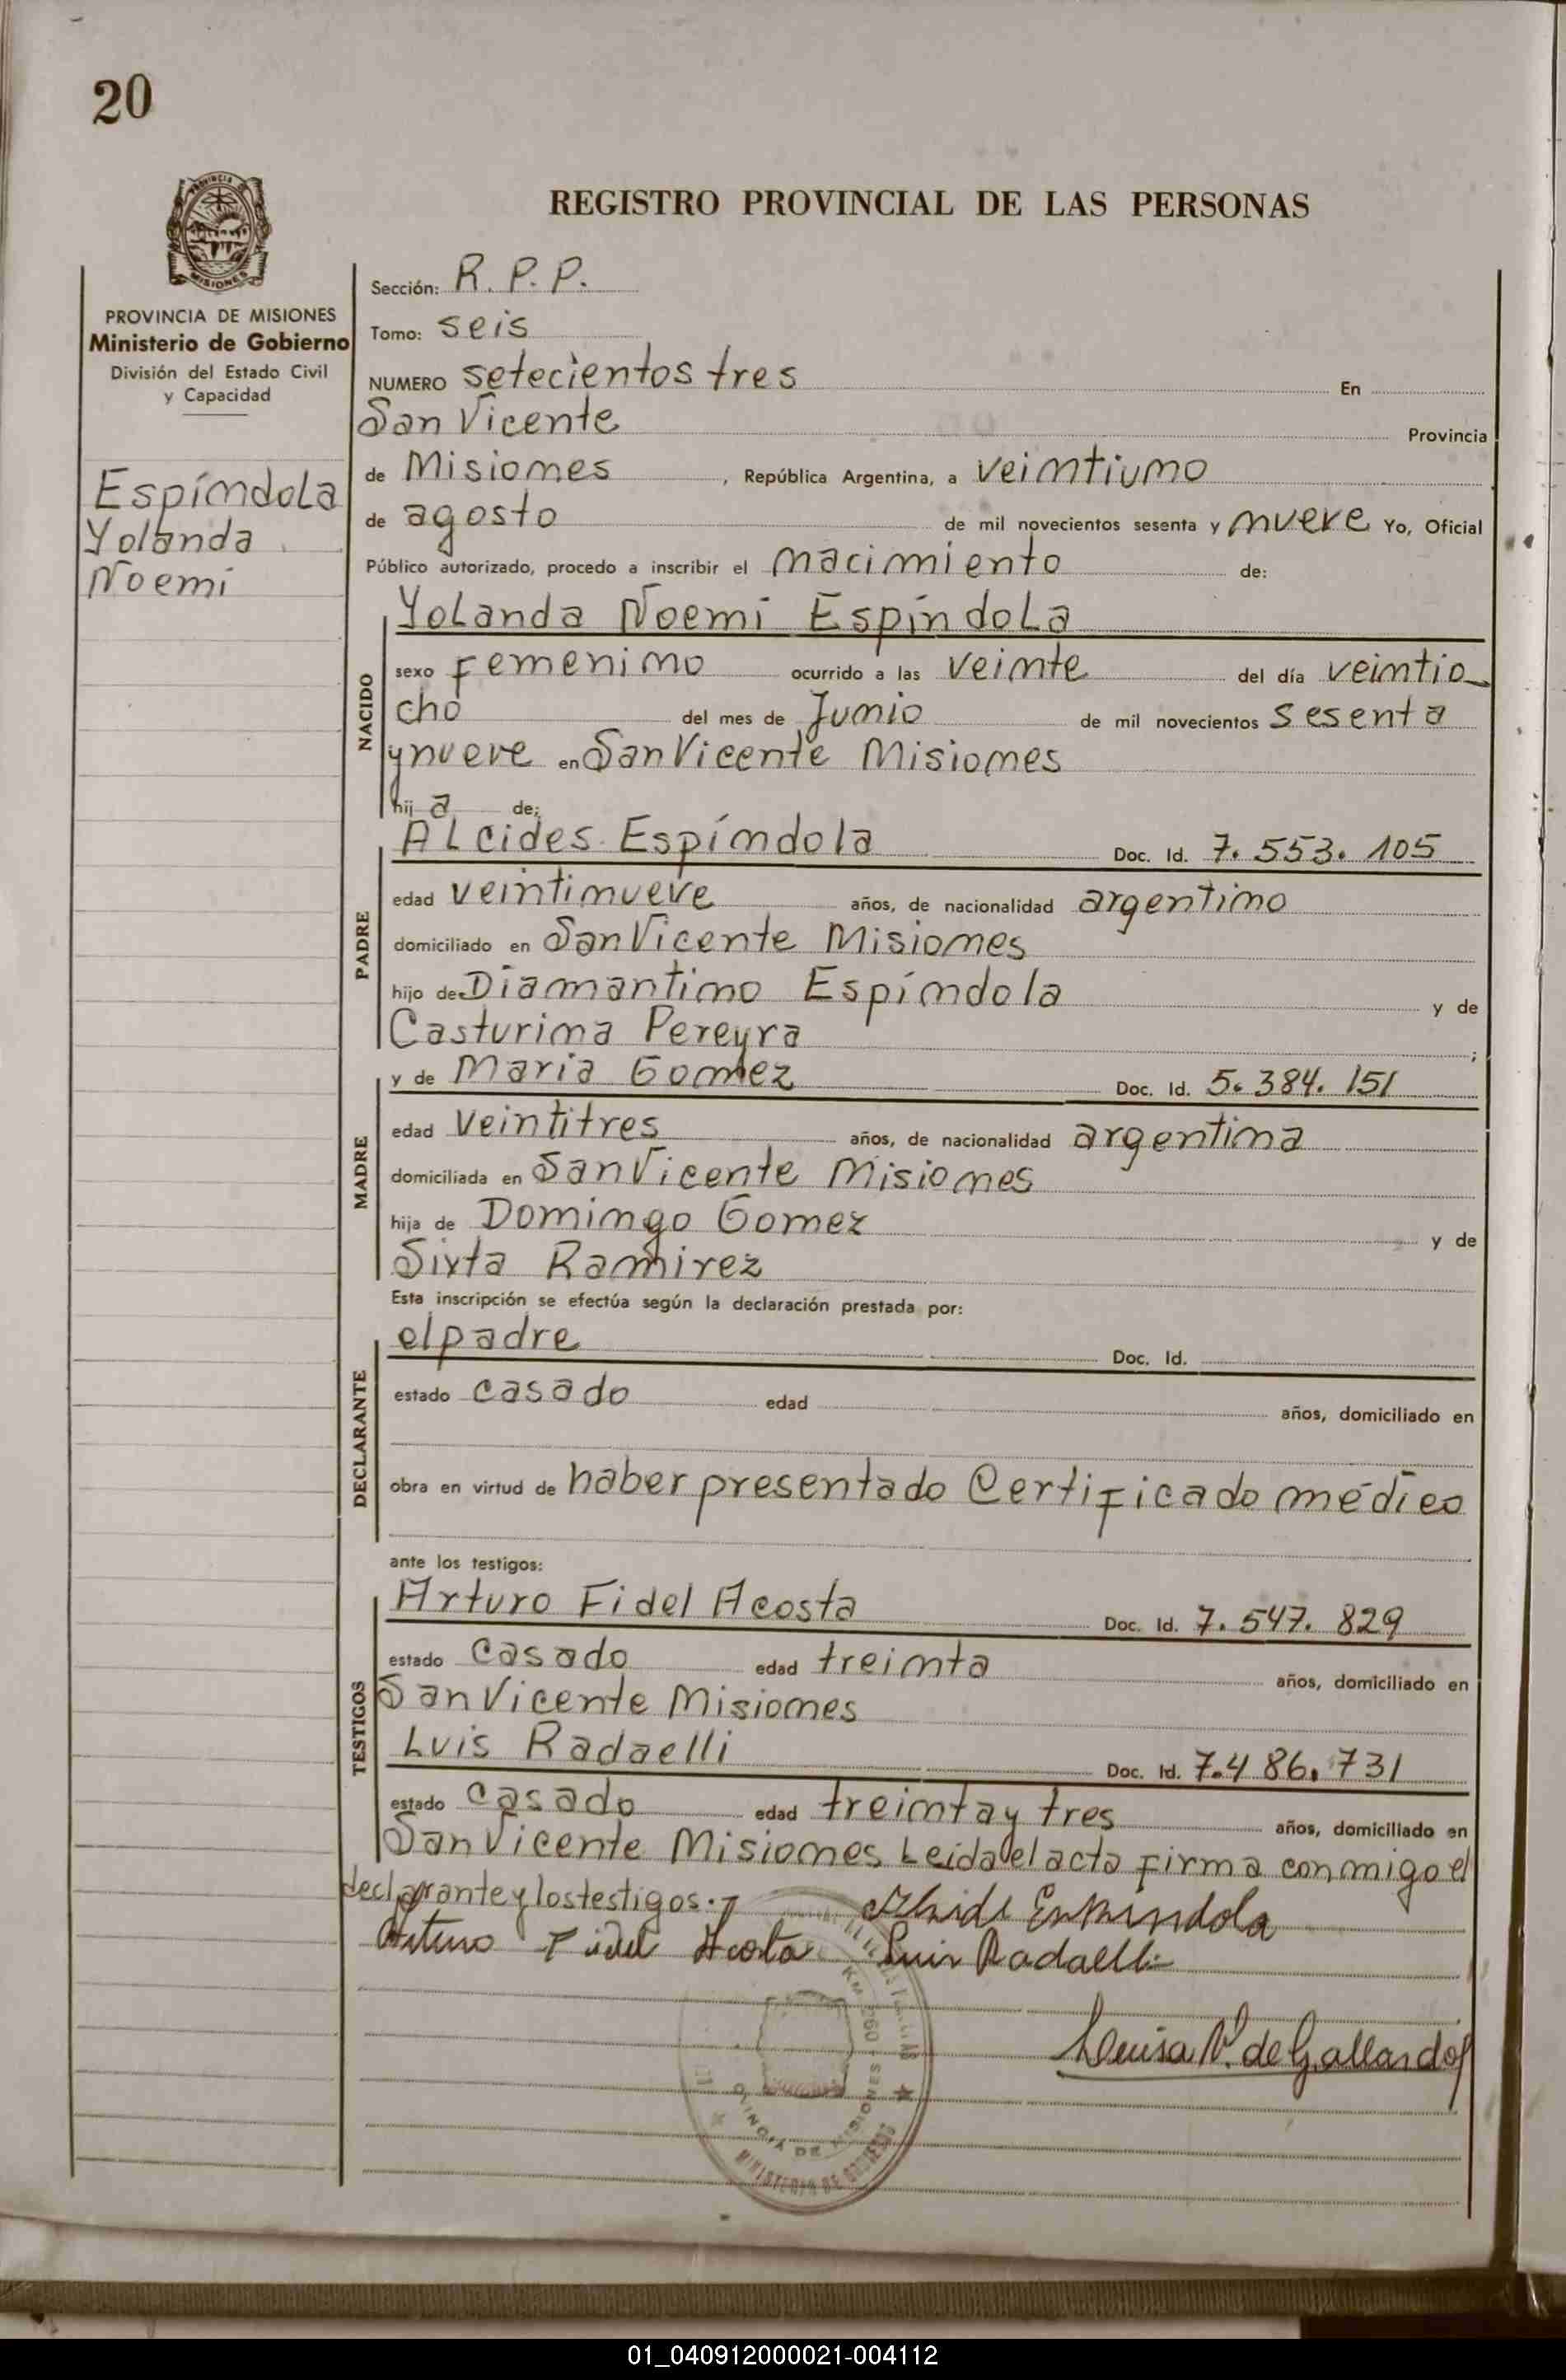 20
REGISTRO PROVINCIAL DE LAS PERSONAS
PROVINCIA DE MISIONES
Ministerio de Gobierno
División del Estado Civil
y Capacidad
Espíndola
Yolanda
Noemi
Sección: R. P. P.
Tomo: seis
NUMERO setecientos tres En
San Vicente Provincia
de Misiones, República Argentina, a veintiuno
de agosto de mil novecientos sesenta y nueve Yo, Oficial
Público autorizado, procedo a inscribir el nacimiento de:
Yolanda Noemi Espíndola
NACIDO
sexo femenino ocurrido a las veinte del día veintio
cho del mes de Junio de mil novecientos sesenta
y nueve en San Vicente Misiones
hij a de:
Alcides Espíndola Doc. Id. 7.553.105
PADRE
edad veintinueve años, de nacionalidad argentino
domiciliado en San Vicente Misiones
hijo de Diamantino Espíndola y de
Casturina Pereyra ;
y de Maria Gomez Doc. Id. 5.384.151
MADRE
edad veintitres años, de nacionalidad argentina
domiciliada en San Vicente Misiones
hija de Domingo Gomez y de
Sixta Ramirez
Esta inscripción se efectúa según la declaración prestada por:
el padre Doc. Id.
DECLARANTE
estado casado edad años, domiciliado en
obra en virtud de haber presentado Certificado médico
ante los testigos:
Arturo Fidel Acosta Doc. Id. 7.547.829
TESTIGOS
estado casado edad treinta años, domiciliado en
San Vicente Misiones
Luis Radaelli Doc. Id. 7.486.731
estado casado edad treinta y tres años, domiciliado en
San Vicente Misiones Leida el acta firma conmigo el
declarante y los testigos.-
Arturo Fidel Acosta Luis Radaelli
Luisa V. de Gallardo
MINISTERIO DE GOBIERNO
01_040912000021-004112